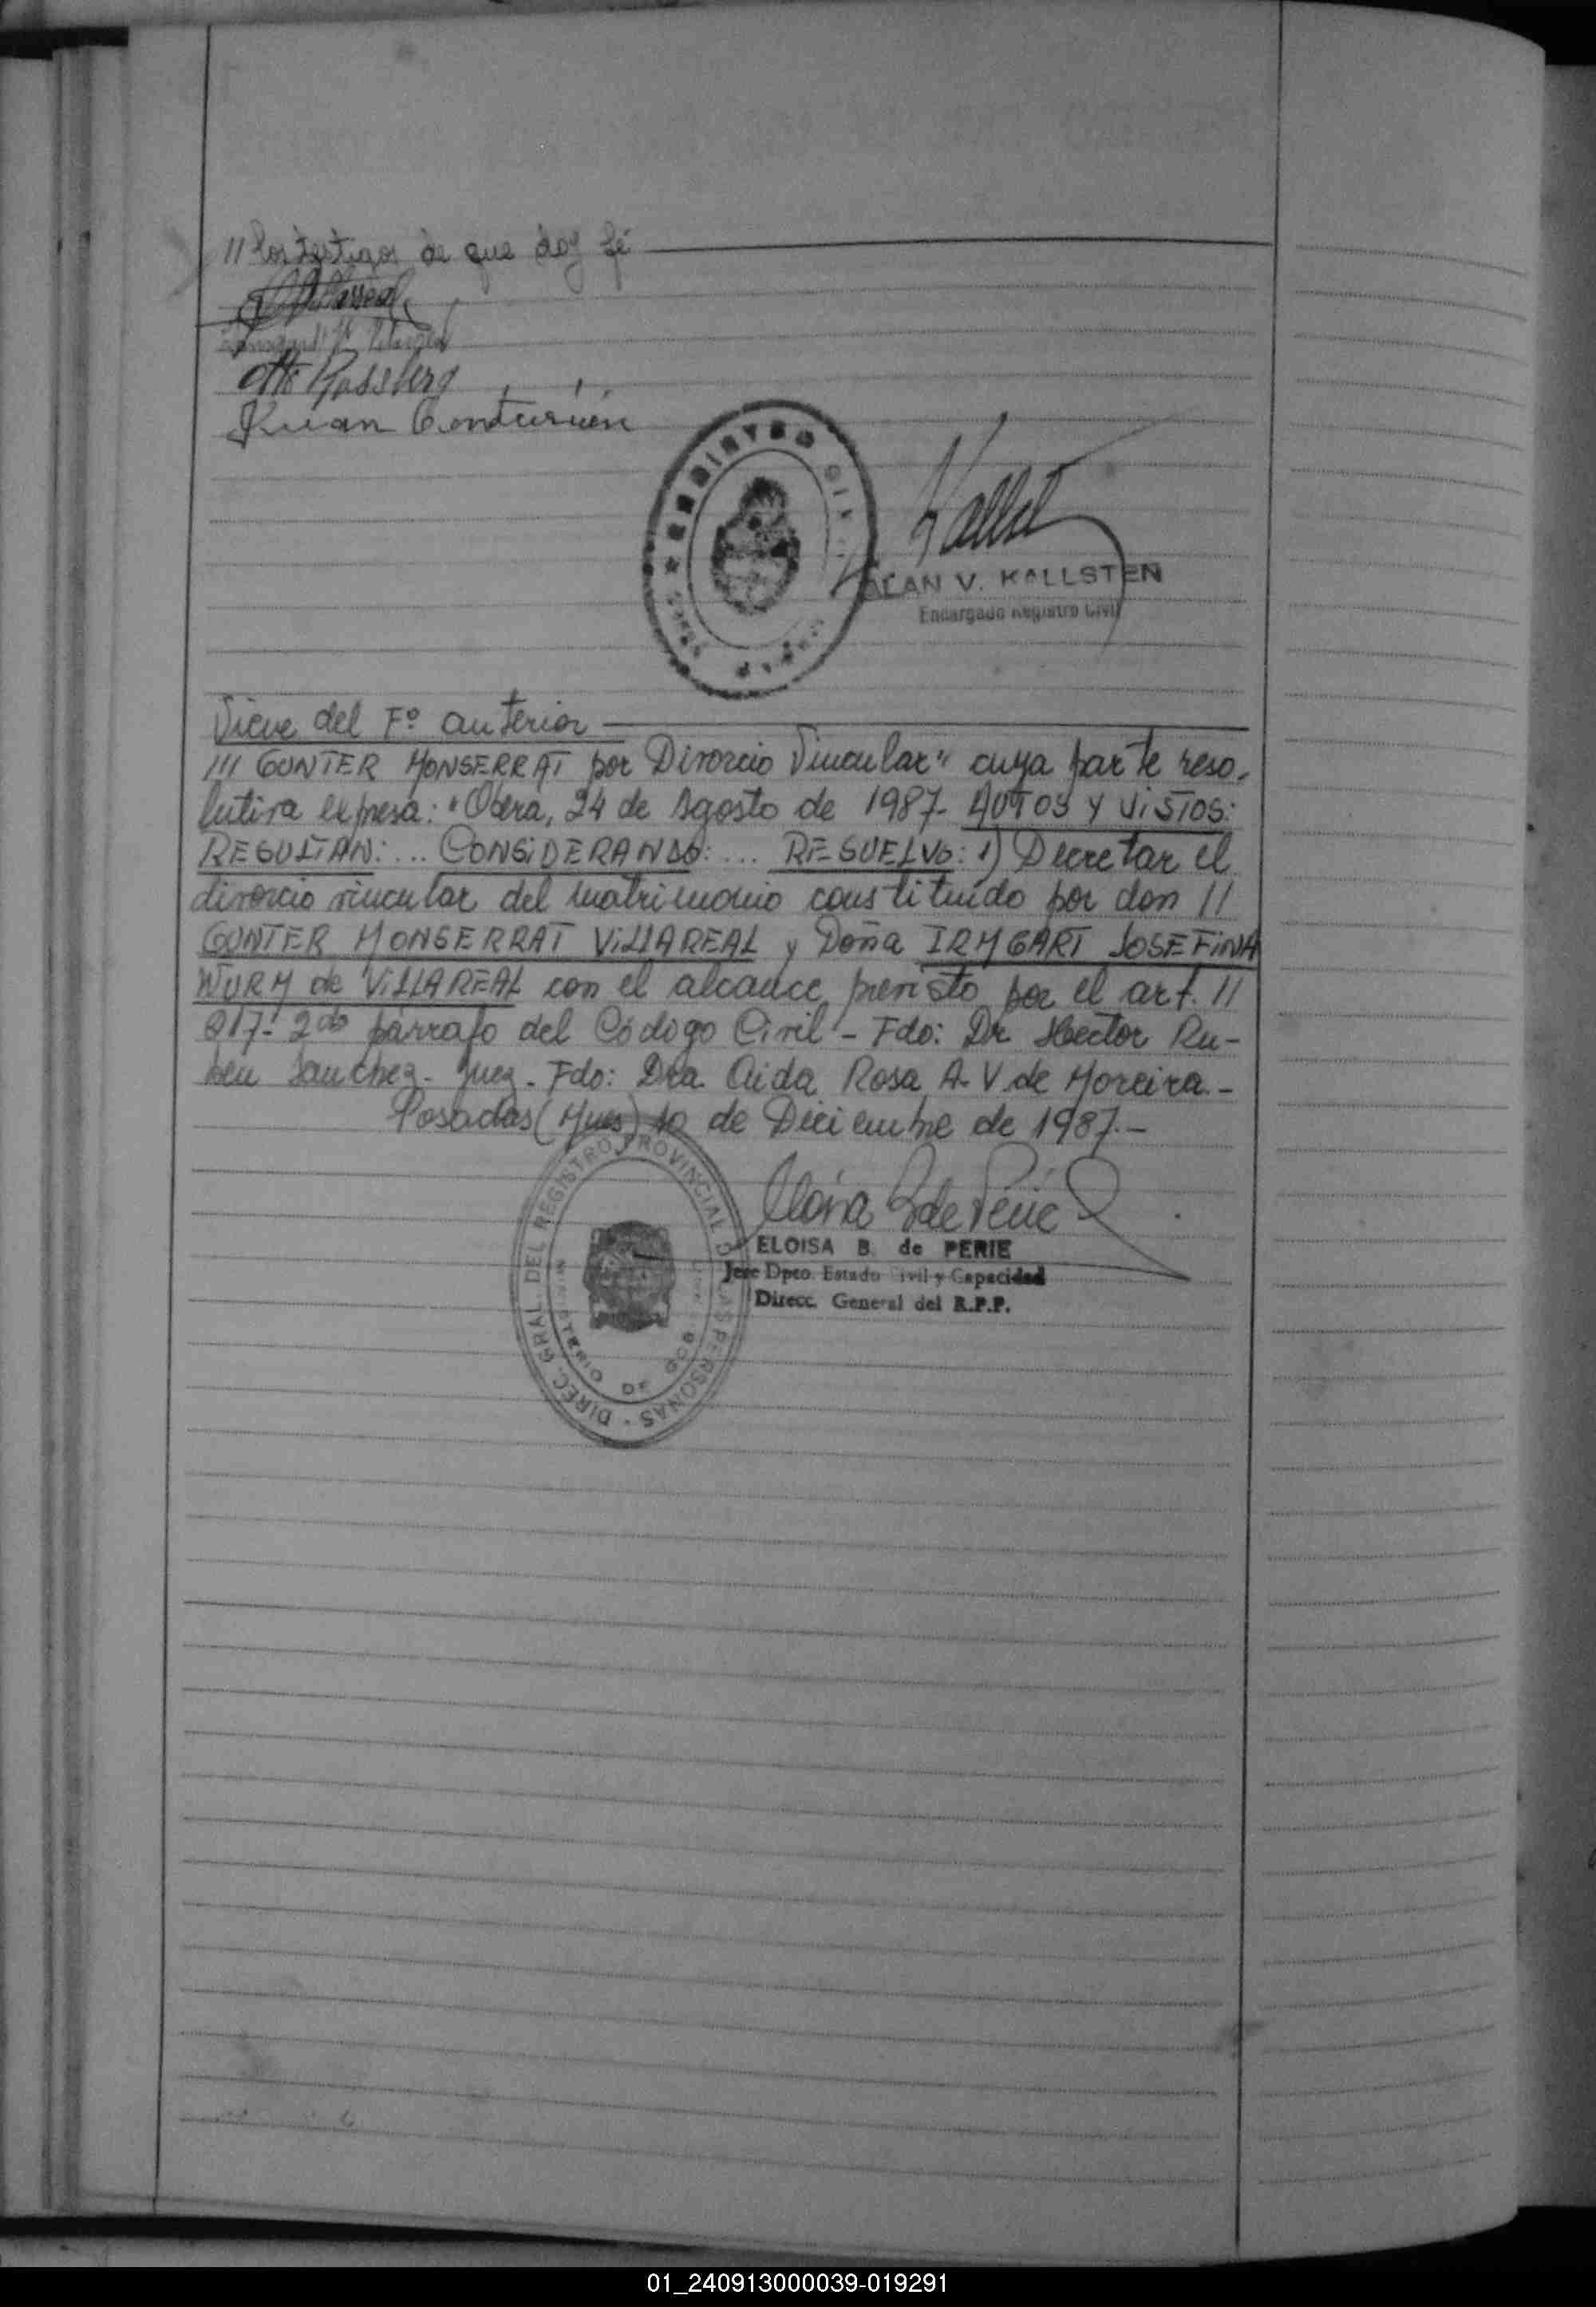 // los testigos de que doy fé
Otto Rossberg
Juan Centurión
REGISTRO CIVIL
ALAN V. KALLSTEN
Encargado Registro Civil
Viene del Fº anterior
/// GUNTER MONSERRAT por Divorcio Vincular" cuya parte reso-
lutiva expresa: "Obera, 24 de Agosto de 1987- AUTOS Y VISTOS:
RESULTAN: ... CONSIDERANDO: ... RESUELVO: 1) Decretar el
divorcio vincular del matrimonio constituído por don //
GUNTER MONSERRAT VILLAREAL y Doña IRMGART JOSEFINA
WURM de VILLAREAL con el alcance previsto por el art. //
217- 2do párrafo del Código Civil - Fdo: Dr Hector Ru-
ben Sanchez- Juez- Fdo: Dra. Aida Rosa A. V. de Moreira.-
Posadas (Mnes) 10 de Diciembre de 1987.-
DIREC. GRAL. DEL REGISTRO PROVINCIAL DE LAS PERSONAS
MINISTERIO DE GOB
ELOISA B. de PERIE
Jefe Dpto. Estado Civil y Capacidad
Direcc. General del R.P.P.
01_240913000039-019291